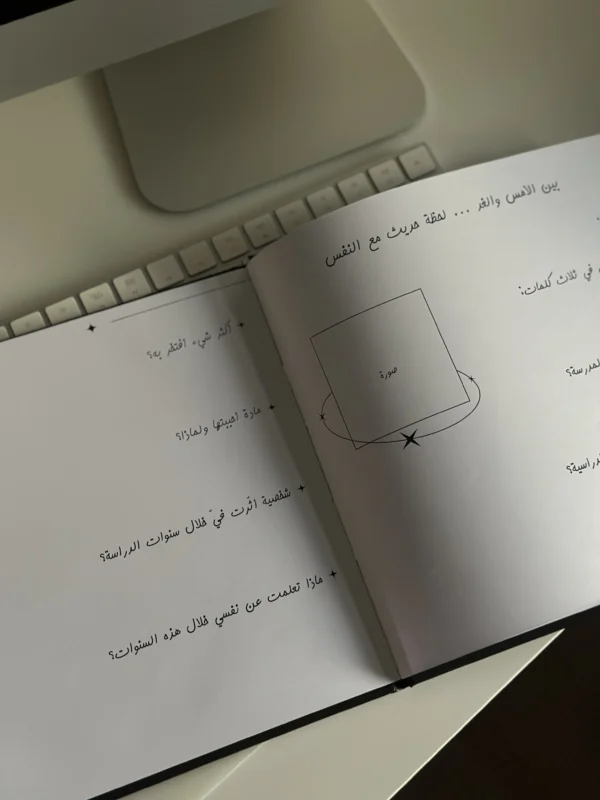 بين الأمس والغد ... لحظة حديث مع النفس
في ثلاث كلمات:
صورة
أكثر شيء افتخر به؟
مادة احببتها ولماذا؟
شخصية اثّرت فيّ خلال سنوات الدراسة؟
ماذا تعلمت عن نفسي خلال هذه السنوات؟